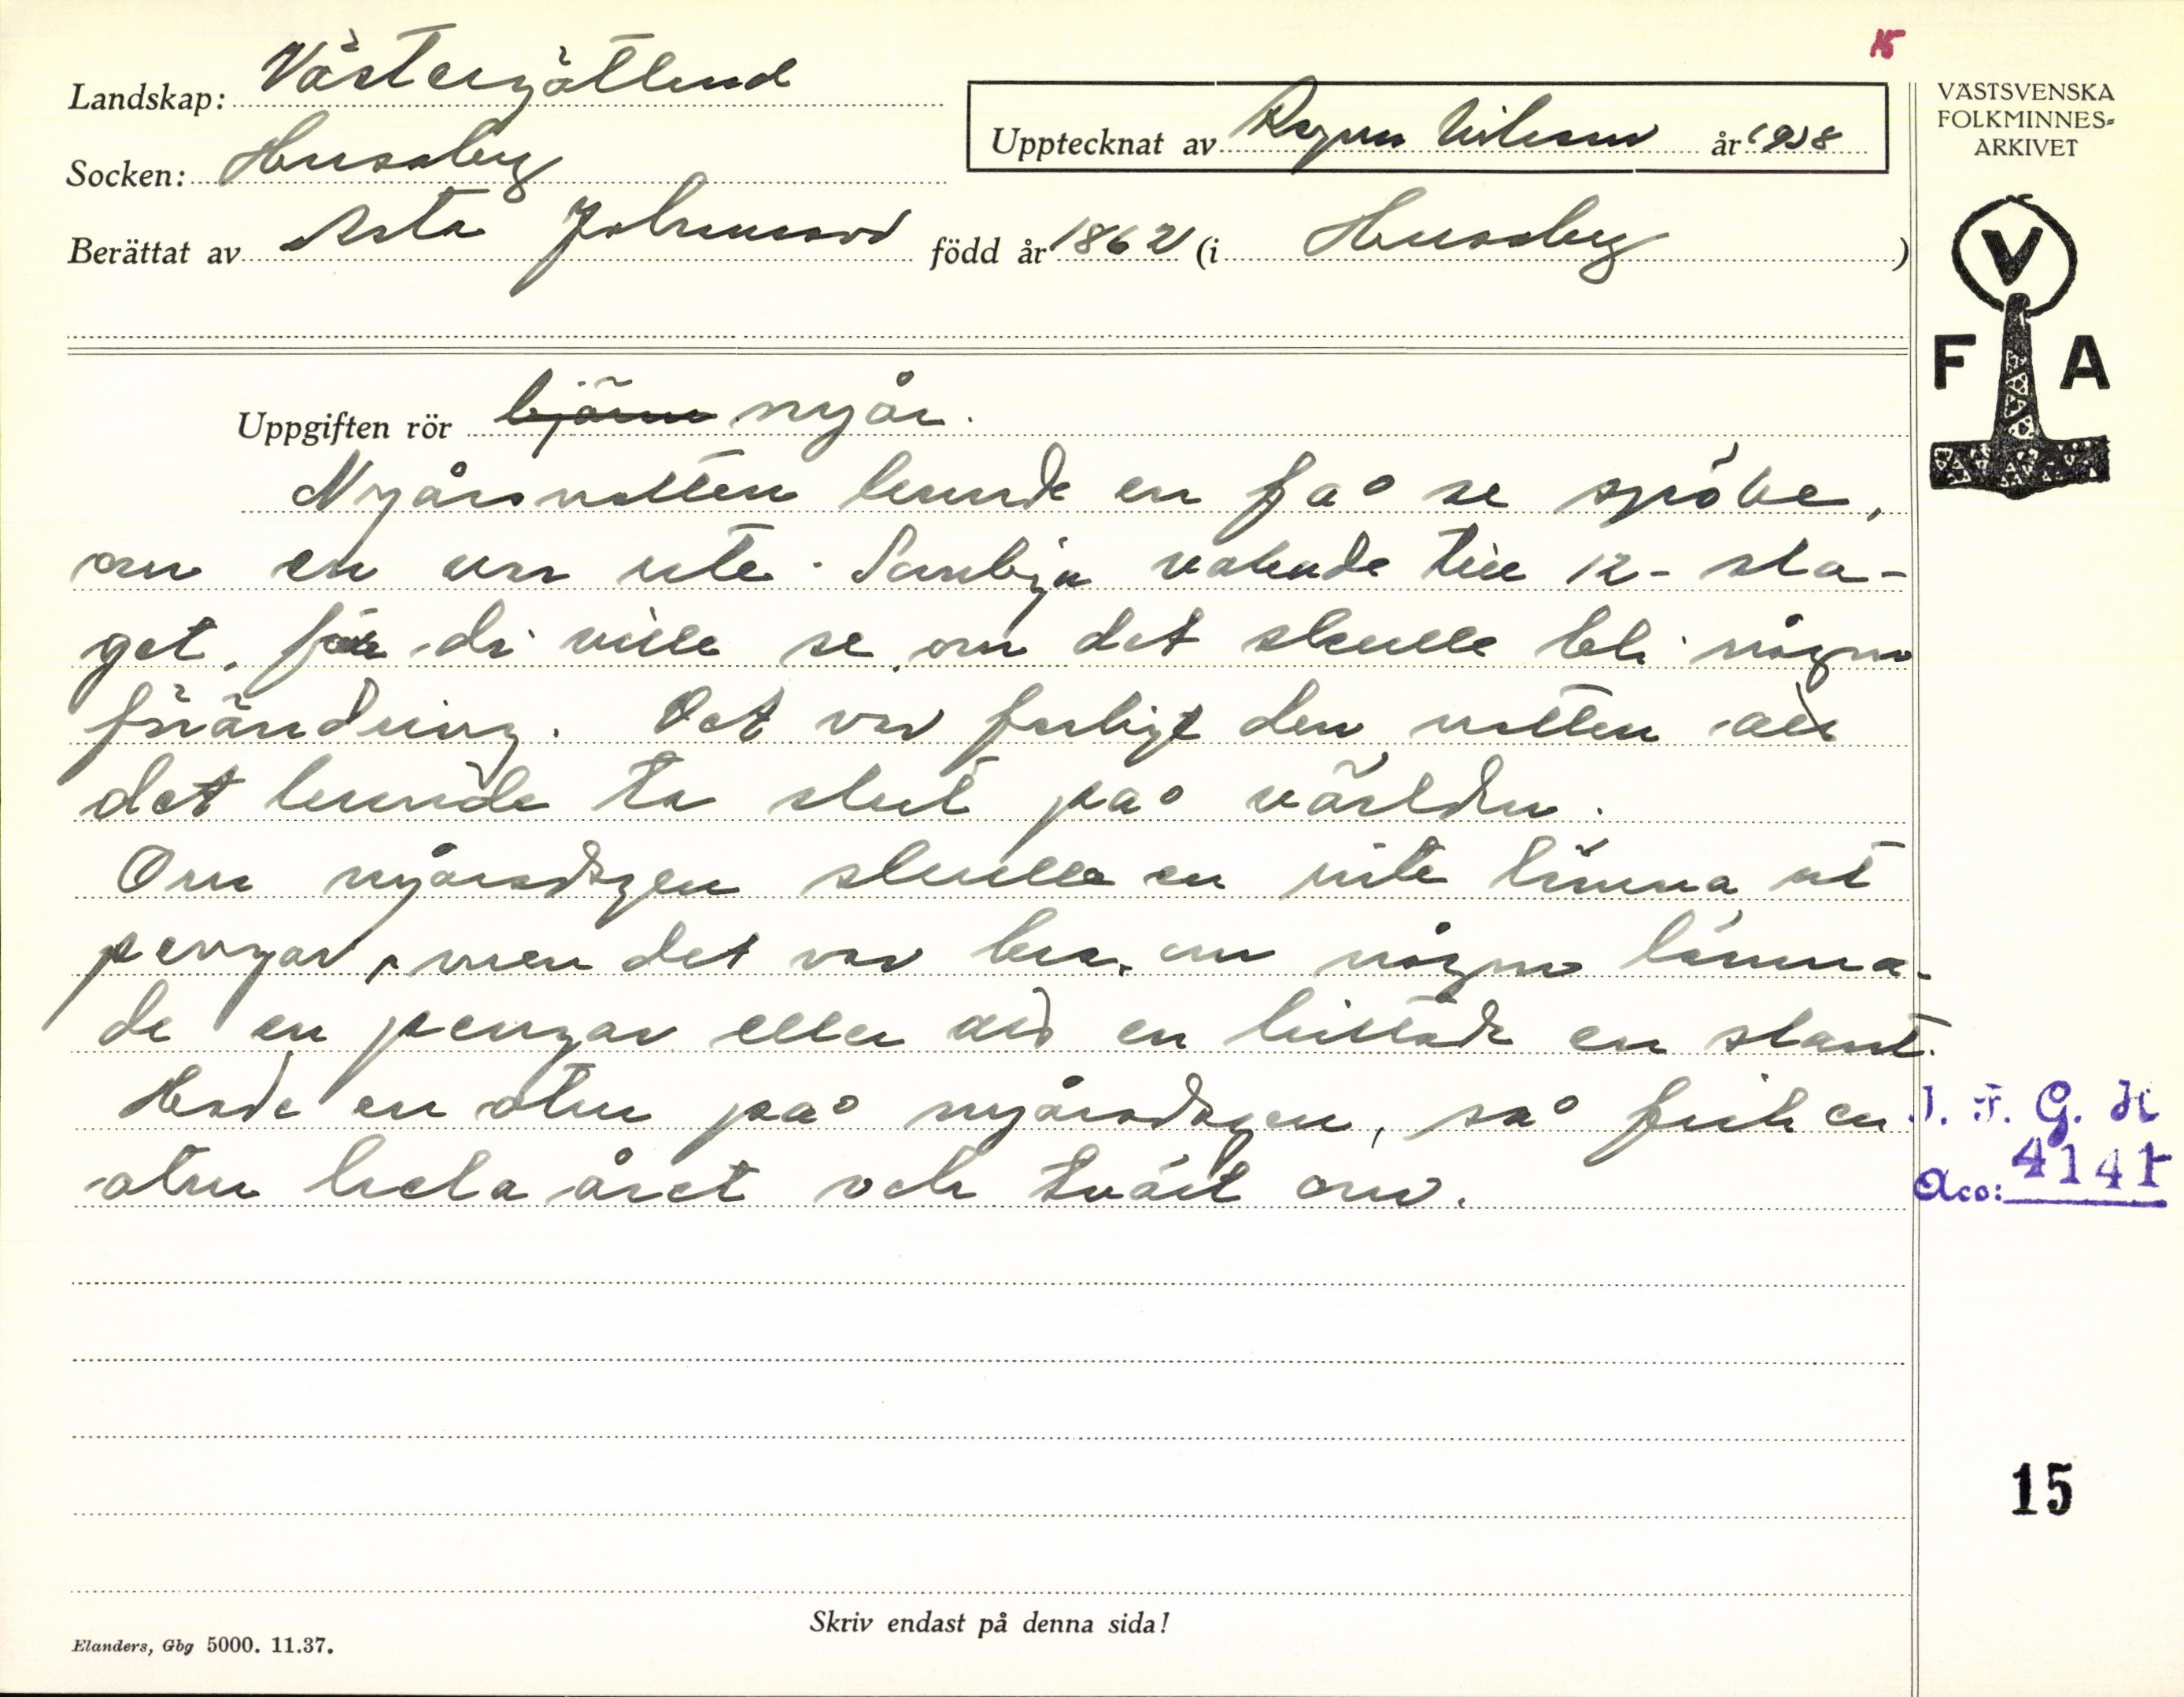 15
Landskap: Västergötland
Socken: Husaby
Upptecknat av Ragnar Nilsson år 1938
Berättat av Asta Johansson född år 1862 (i Husaby)
VÄSTSVENSKA
FOLKMINNES-
ARKIVET
V
F A
Uppgiften rör björn nyår.
Nyårsnatten kunde en få se spöke,
om en va ute. Somliga vakade till 12-sla-
get, för di ville se om det skulle bli någon
förändring. Det var farligt den natten att
det kunde ta slut på världen.
Om nyårsdagen skulle en inte lämna ut
pengar, men det var bra om någon lämna-
de en pengar eller att en hittade en slant.
Hade en otur på nyårsdagen, så fick en
otur hela året och tvärt om.
I. F. G. H
Acc: 4141
15
Skriv endast på denna sida!
Elanders, Gbg 5000. 11.37.